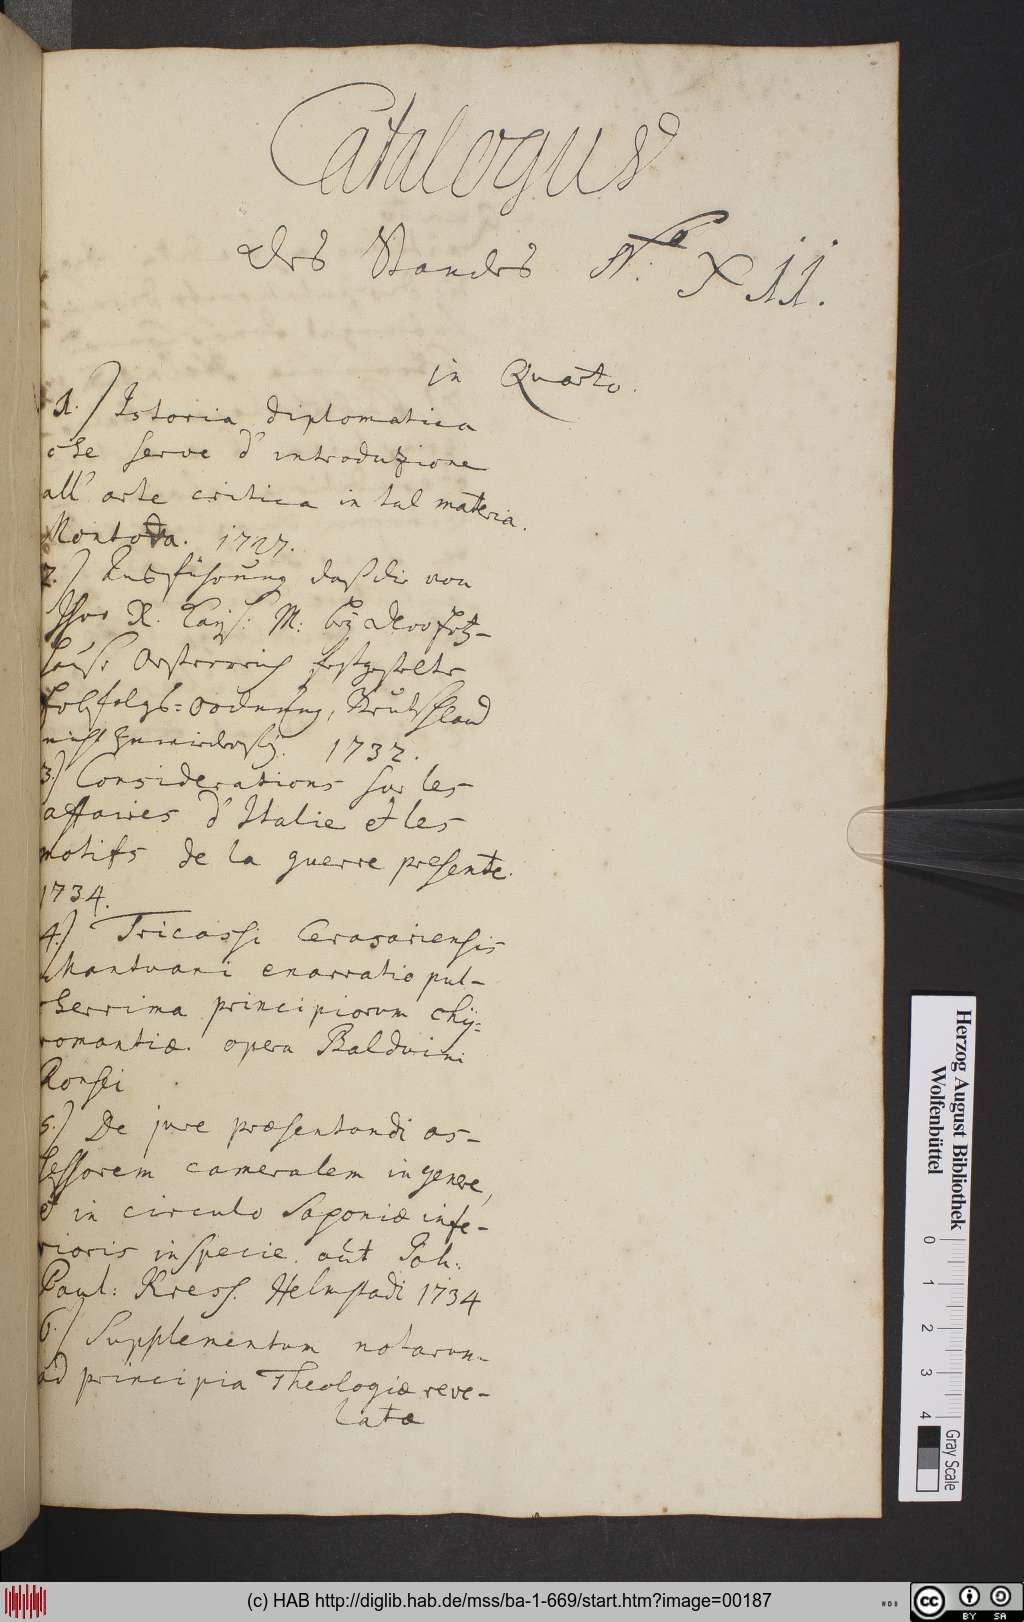 Catalogus
des Standes No: XII.
in Quarto.
1.) Istoria diplomatica
che serve d' introduzione
all' arte critica in tal materia.
Mantova. 1727.
2.) Ausführung daß die von
Ihro R. Kays: M: bey dero Ertz-
hause Oesterreich festgestelte
Erbfolgs-Ordnung, Teutschland
nicht zuwieder sey. 1732.
3.) Considerations sur les
affaires d' Italie et les
motifs de la guerre presente.
1734.
4.) Tricassi Cerasariensis
Mantuani enarratio pul-
cherrima principiorum chy-
romantiæ. opera Balduini
Ronsei
5.) De jure præsentandi as-
sessorem cameralem in genere,
et in circulo Saxoniæ infe-
rioris in specie. aut Joh:
Paul: Kress. Helmstadi 1734
6.) Supplementum notarum
ad principia Theologiæ reve-
latæ
Herzog August Bibliothek
Wolfenbüttel
0 1 2 3 4
Gray Scale
(c) HAB http://diglib.hab.de/mss/ba-1-669/start.htm?image=00187
cc BY SA